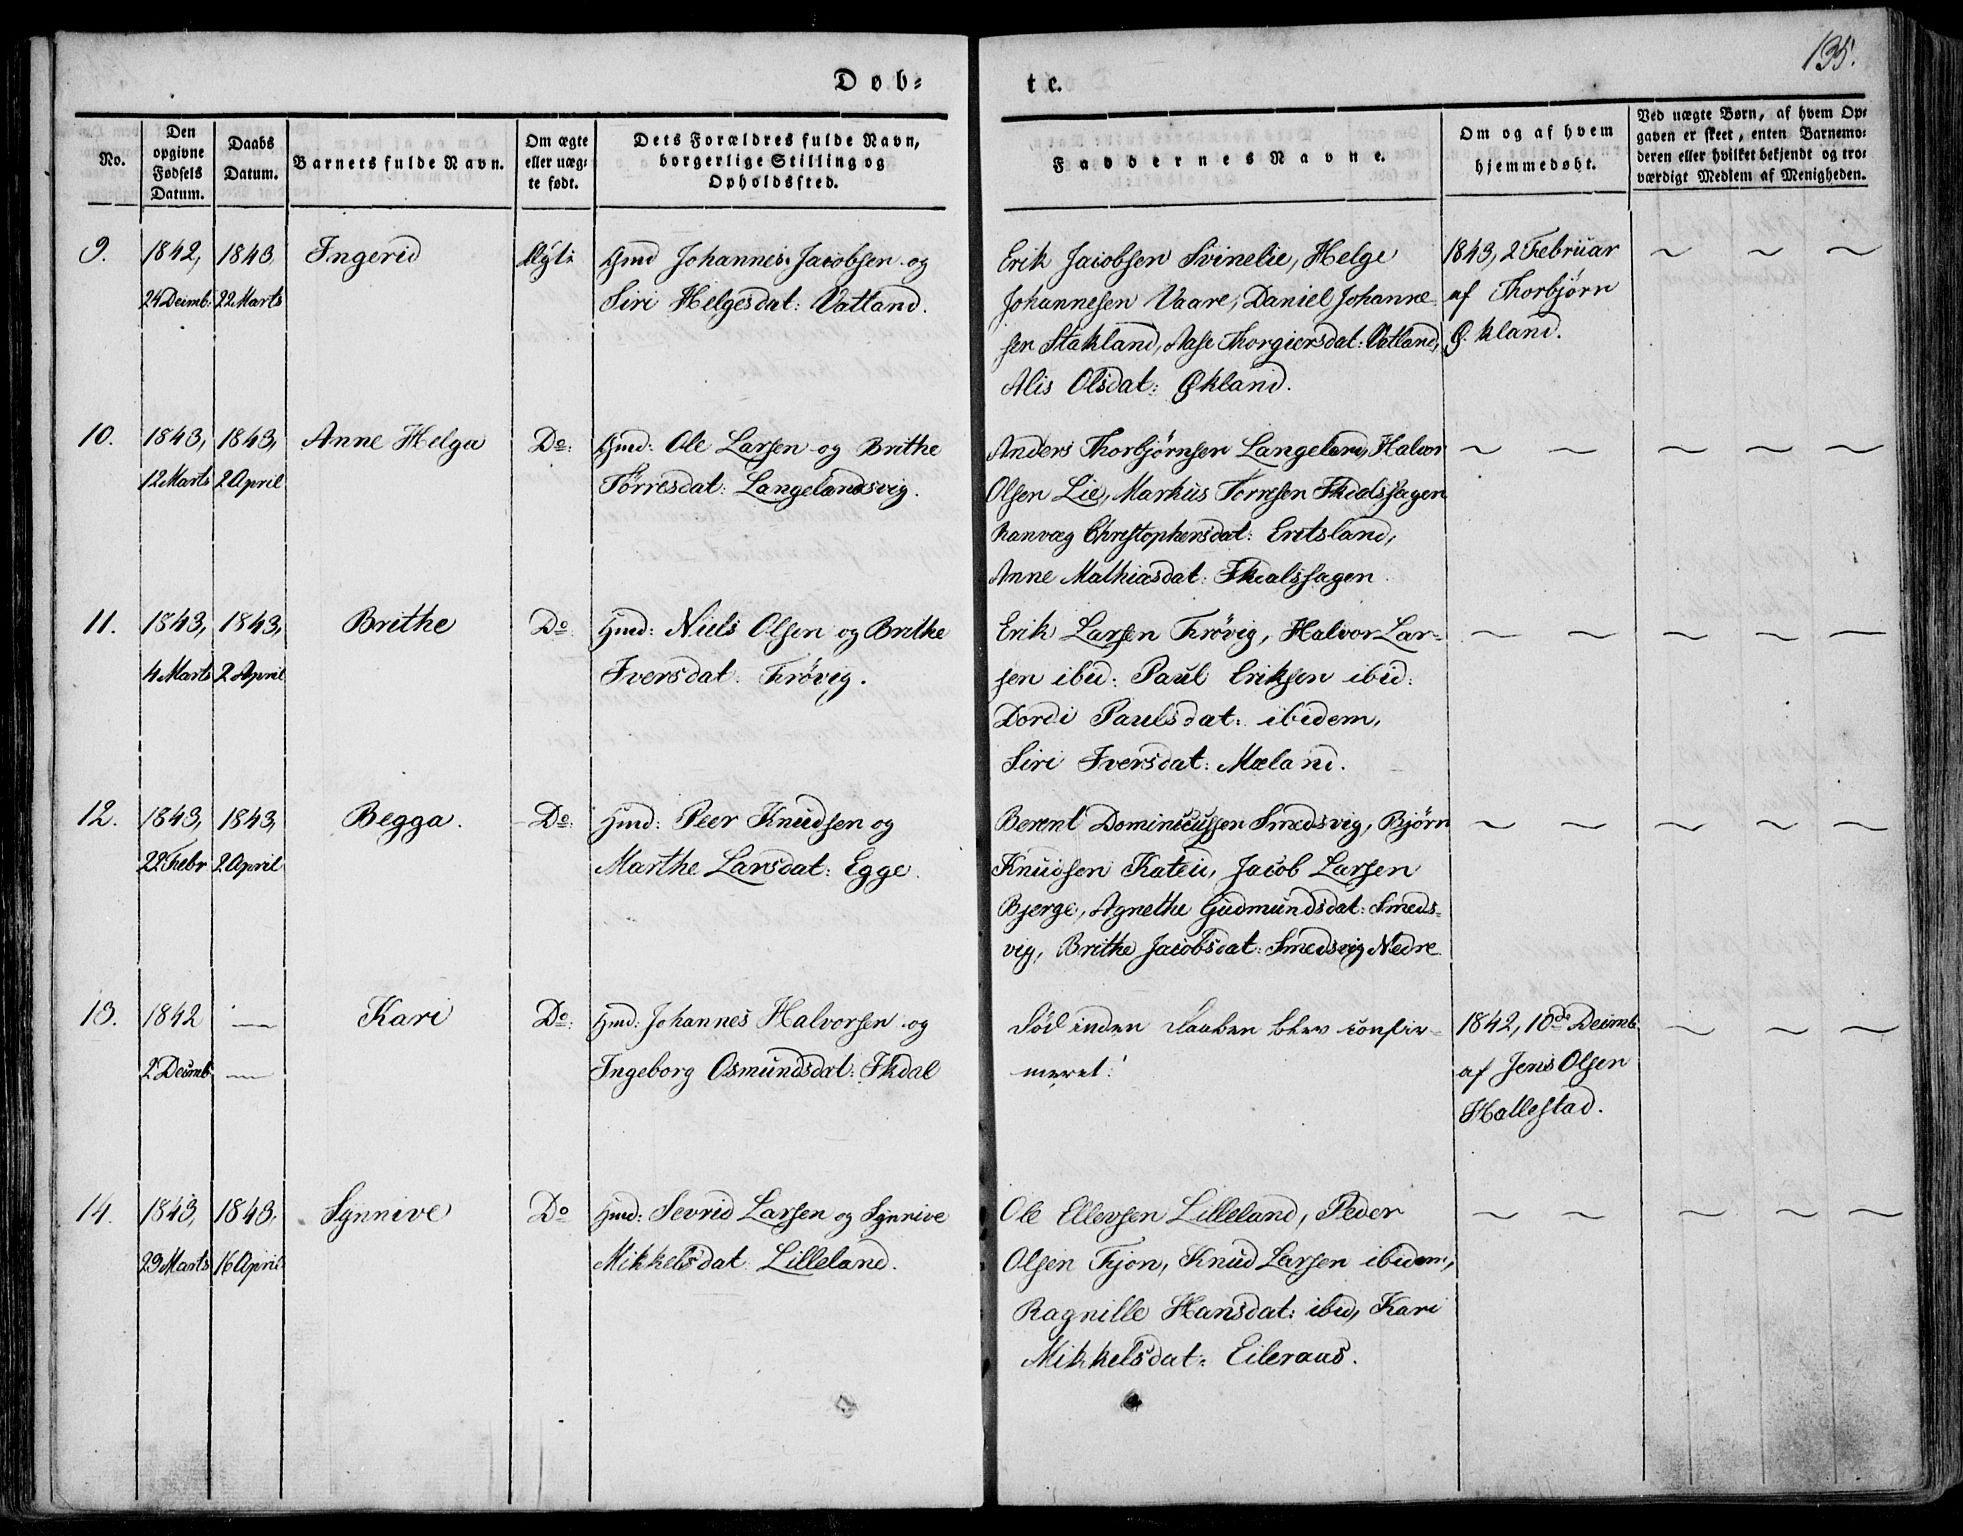 135.
Døb=
te.
No.
Den
opgivne
Fødsels
Datum.
Daabs
Datum.
Barnets fulde Navn.
Om ægte
eller uæg=
te født.
Dets Forældres fulde Navn,
borgerlige Stilling og
Opholdssted.
Faddernes Navne.
Om og af hvem
hjemmedøbt.
Ved uægte Børn, af hvem Op=
gaven er skeet, enten Barnemo=
deren eller hvilket bekjendt og tro=
værdigt Medlem af Menigheden.
9.
1842,
24 Decmb.
1843
22 Marts
Ingerid
Ægt:
Hmd Johannes Jacobsen og
Siri Helgesdat: Vatland.
Erik Jacobsen Svinelie, Helge
Johannesen Vaare, Daniel Johanne-
sen Stakland, Aase Thorgiersdat: Vatland,
Alis Olsdat: Økland.
1843, 2 Februar
af Thorbjørn
Økland.
10.
1843,
12 Marts
1843,
2 April
Anne Helga
Do:
Hmd: Ole Larsen og Brithe
Tørresdat: Langelandsvig.
Anders Thorbjørnsen Langeland, Halvor
Olsen Lie, Markus Torresen
Ranvæg Christophersdat:
Anne Mathiasdat:
11.
1843,
4 Marts
1843,
2 April
Brithe
Do
Hmd: Niels Olsen og Brithe
Iversdat:
Erik Larsen Halvor Lar-
sen ibid: Paul Eriksen ibid:
Dordi Paulsdat: ibidem,
Siri Iversdat: Mæland.
12.
1843,
22 Febr
1843,
2 April
Begga.
Do:
Hmd: Peer Knudsen og
Marthe Larsdat: Egge.
Berent Dominicussen Smedsvig, Bjørn
Knudsen Jacob Larsen
Bjerge, Agnethe Gudmundsdat: Smeds-
vig, Brithe Jacobsdat: Smedsvig Nedre
13.
1842
2 Decmb
Kari
Do:
Hmd: Johannes Halvorsen og
Ingeborg Osmundsdat:
Død inden Daaben blev confir-
meret!
1842, 10de Decmb.
af Jens Olsen
Hallestad.
14.
1843,
29 Marts
1843.
16 April
Synnive
Do
Hmd: Sevrid Larsen og Synnive
Mikkelsdat: Lilleland.
Ole Ellevsen Lilleland, Peder
Olsen Fjon, Knud Larsen ibidem,
Ragnille Hansdat: ibid, Kari
Mikkelsdat: Eileraas.